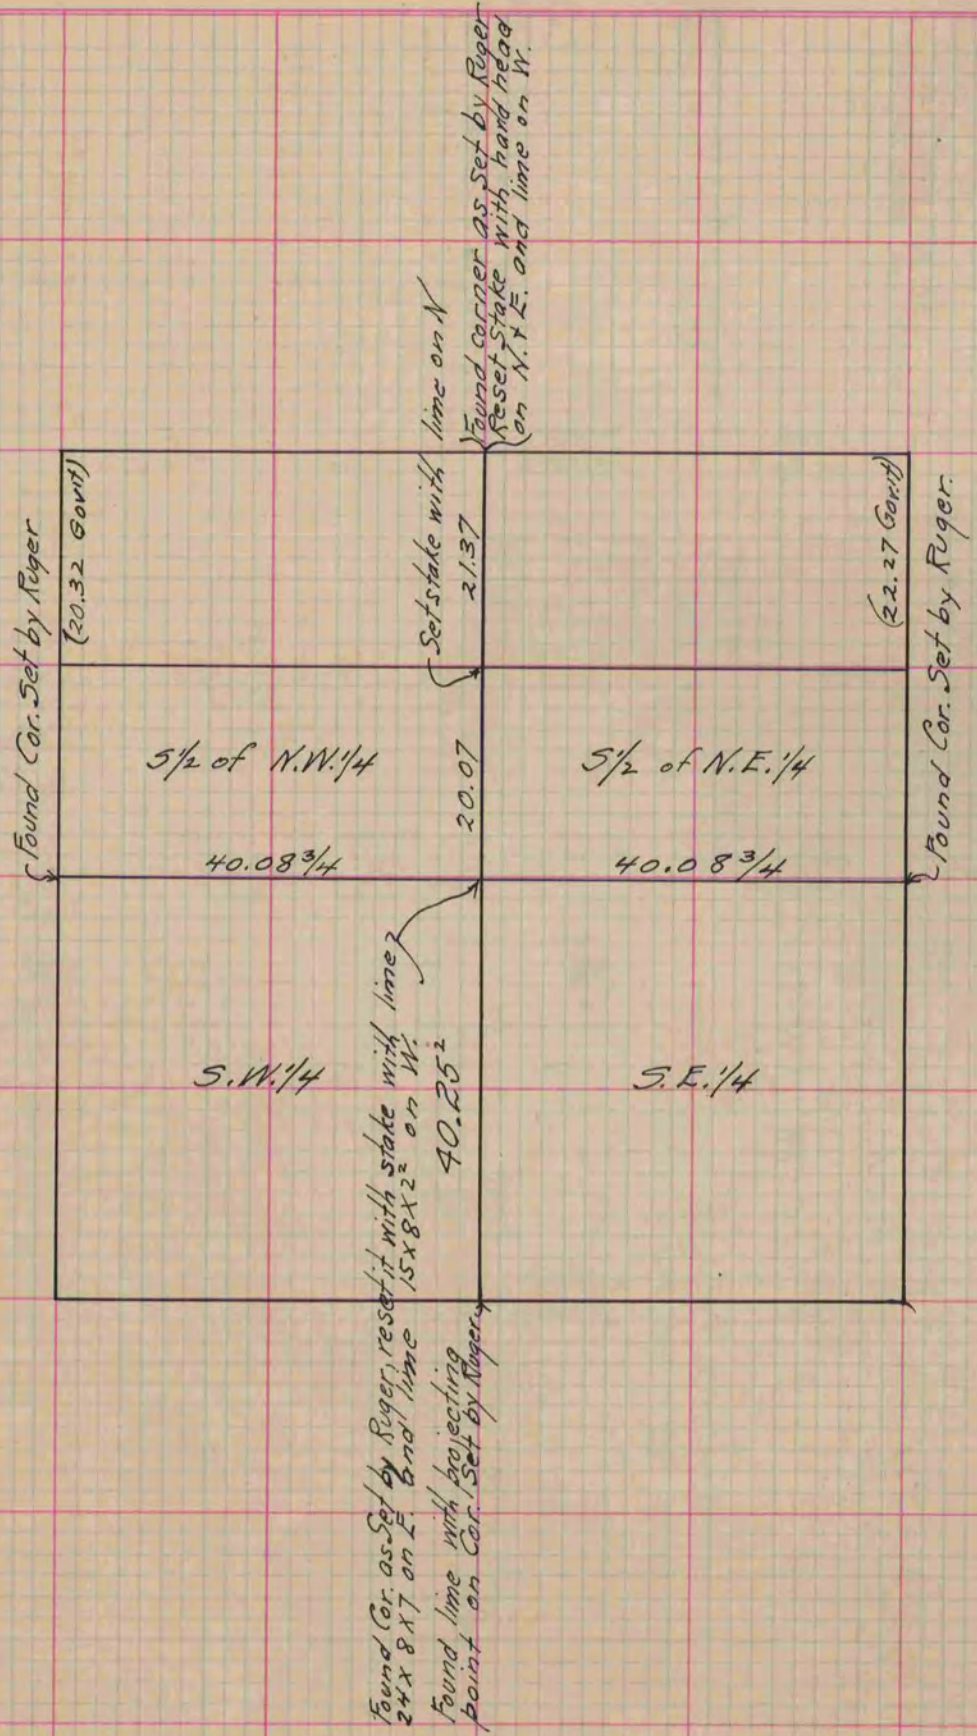 Found Cor. Set by Ruger
(20.32 Gov't)
lime on N
Set stake with
21.37
Found corner as set by Ruger
Reset Stake with hard head
on N. & E. and lime on W.
(22.27 Gov't)
Found Cor. Set by Ruger.
S1/2 of N.W.1/4
20.07
S1/2 of N.E.1/4
40.08 3/4
40.08 3/4
Found Cor. as Set by Ruger, reset it with stake with lime
24 x 8 x 7 on E. and lime 15 x 8 x 2² on W.
40.25²
S.W.1/4
S.E.1/4
Found lime with projecting
point on Cor. Set by Ruger